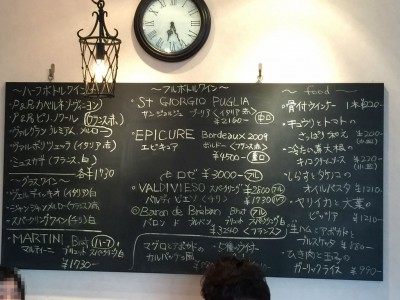 ~ハーフボトルワイン~
・P&Rカベルネソーヴィニヨン
・P&Rピノノワール (フランス赤)
・ヴァルグラン プレミアム メルロー
・ヴァルポリチェッラ (イタリア赤)
・ミュスカデ (フランス白)
各¥1730
~グラスワイン~
・ヴェルディッキオ(イタリア白)
・ジャンジャンメルロー(フランス赤)
・スパークリングワイン(白)
MARTINI Brut (ハーフ)
マルティーニ ブリュット スパークリング白
¥1730-
~フルボトルワイン~
・St GIORGIO PUGLIA
サンジョルジュ プーリア <イタリア赤>
¥2160-
・EPICURE Bordeaux 2009
エピキュア ボルドー <フランス赤>
¥4500-
セロゼ ¥3000- フル
VALDIVIESO スパークリング ¥2800 フル
バルディビエソ <チリ> ¥1730 ハーフ
Baron de Breban Brut フル
バロン ド ブルバン ブリュット スパークリング白
¥3240 <フランス>
マグロとアボカドの
カルパッチョ風
~ food ~
・骨付ウインナー 1本¥220-
・キュウリとトマトの
さっぱりづけ ¥200
・冷たい
・しらすとタケノコの
オイルパスタ ¥1210
・ヤリイカと大葉の
ピッツァ ¥1210-
・生ハムとアボカドと
ブルスケッタ ¥880-
・ひき肉と玉子の
ガーリックライス ¥980-